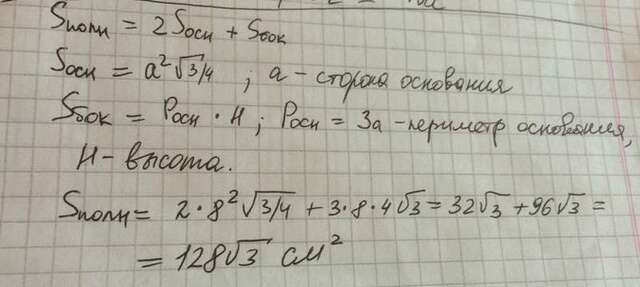 Sполн = 2Sосн + Sбок
Sосн = a²√3/4 ; a - сторона основания
Sбок = Pосн · H ; Pосн = 3a - периметр основания,
H - высота.
Sполн = 2 · 8²√3/4 + 3·8·4√3 = 32√3 + 96√3 =
= 128√3 см²